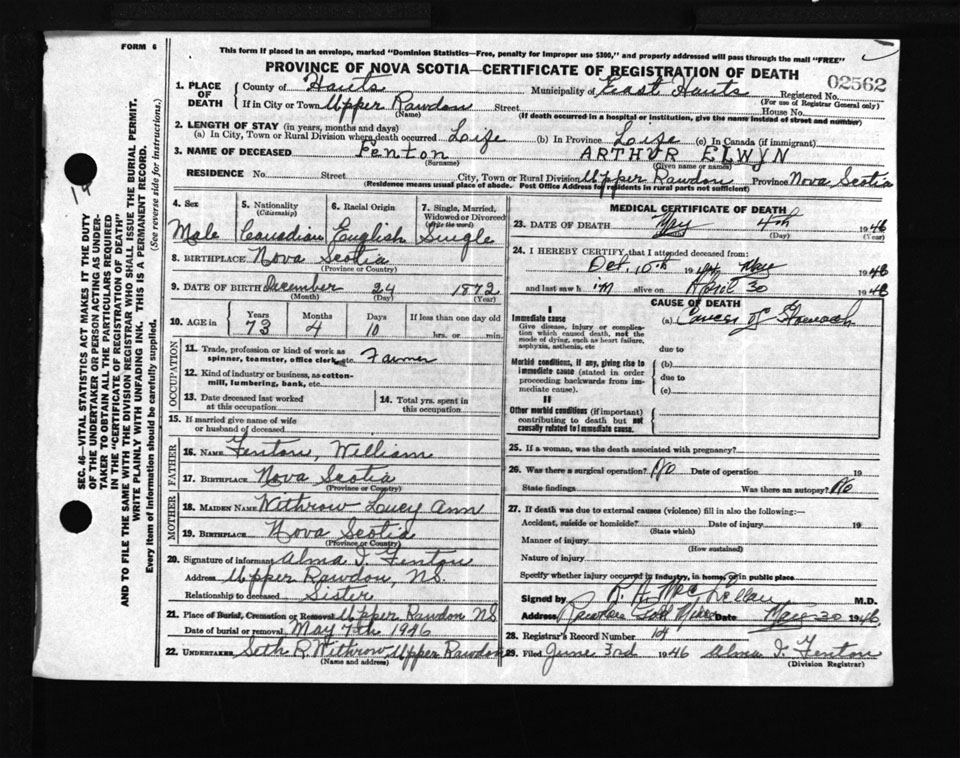 FORM 6
This form if placed in an envelope, marked "Dominion Statistics—Free, penalty for improper use $300," and properly addressed will pass through the mail "FREE"
PROVINCE OF NOVA SCOTIA—CERTIFICATE OF REGISTRATION OF DEATH
02562
1. PLACE OF DEATH
County of Hants Municipality of East Hants Registered No.
(For use of Registrar General only)
If in City or Town Upper Rawdon Street House No.
(Name) (If death occurred in a hospital or institution, give the name instead of street and number)
2. LENGTH OF STAY (in years, months and days)
(a) In City, Town or Rural Division where death occurred Life (b) In Province Life (c) In Canada (if immigrant)
3. NAME OF DECEASED Fenton ARTHUR ELWYN
(Surname) (Given name or names)
RESIDENCE No. Street City, Town or Rural Division Upper Rawdon Province Nova Scotia
(Residence means usual place of abode. Post Office Address for residents in rural parts not sufficient)
4. Sex 5. Nationality (Citizenship) 6. Racial Origin 7. Single, Married, Widowed or Divorced (Write the word)
Male Canadian English Single
8. BIRTHPLACE Nova Scotia
(Province or Country)
9. DATE OF BIRTH December 24 1872
(Month) (Day) (Year)
10. AGE in Years Months Days If less than one day old
73 4 10 hrs. or min.
OCCUPATION
11. Trade, profession or kind of work as spinner, teamster, office clerk, etc. Farmer
12. Kind of industry or business, as cotton-mill, lumbering, bank, etc.
13. Date deceased last worked at this occupation
14. Total yrs. spent in this occupation
15. If married give name of wife or husband of deceased
FATHER
16. NAME Fenton, William
17. BIRTHPLACE Nova Scotia
(Province or Country)
MOTHER
18. MAIDEN NAME Withrow Lucy Ann
19. BIRTHPLACE Nova Scotia
(Province or Country)
20. Signature of informant Alma I. Fenton
Address Upper Rawdon, N.S.
Relationship to deceased Sister
21. Place of Burial, Cremation or Removal Upper Rawdon NS
Date of burial or removal May 7th 1946
22. UNDERTAKER Seth R Withrow Upper Rawdon
(Name and address)
MEDICAL CERTIFICATE OF DEATH
23. DATE OF DEATH May 4th 1946
(Day) (Year)
24. I HEREBY CERTIFY, that I attended deceased from:
Oct. 10th 19 May 1946
and last saw him alive on April 30 1946
CAUSE OF DEATH
I
Immediate cause (a) Cancer of Stomach
Give disease, injury or complication which caused death, not the mode of dying, such as heart failure, asphyxia, asthenia, etc
due to
Morbid conditions, if any, giving rise to immediate cause (stated in order proceeding backwards from immediate cause).
(b)
due to
(c)
II
Other morbid conditions (if important) contributing to death but not causally related to immediate cause.
25. If a woman, was the death associated with pregnancy?
26. Was there a surgical operation? No Date of operation 19
State findings Was there an autopsy? No
27. If death was due to external causes (violence) fill in also the following:—
Accident, suicide or homicide? Date of injury 19
(State which)
Manner of injury
(How sustained)
Nature of injury
Specify whether injury occurred in industry, in home, or in public place
Signed by R. A. MacLellan M.D.
Address Rawdon Gold Mines Date May 30 1946
28. Registrar's Record Number 14
29. Filed June 3rd 1946 Alma I. Fenton
(Division Registrar)
SEC. 46—VITAL STATISTICS ACT MAKES IT THE DUTY OF THE UNDERTAKER OR PERSON ACTING AS UNDERTAKER TO OBTAIN ALL THE PARTICULARS REQUIRED IN THE "CERTIFICATE OF REGISTRATION OF DEATH" AND TO FILE THE SAME WITH THE DIVISION REGISTRAR WHO SHALL ISSUE THE BURIAL PERMIT.
WRITE PLAINLY WITH UNFADING INK. THIS IS A PERMANENT RECORD.
Every item of information should be carefully supplied. (See reverse side for instructions.)